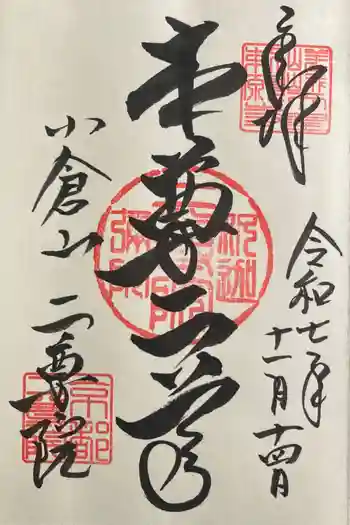 奉拝
令和七年
十一月十四日
本尊二尊
小倉山 二尊院
釈迦
京都